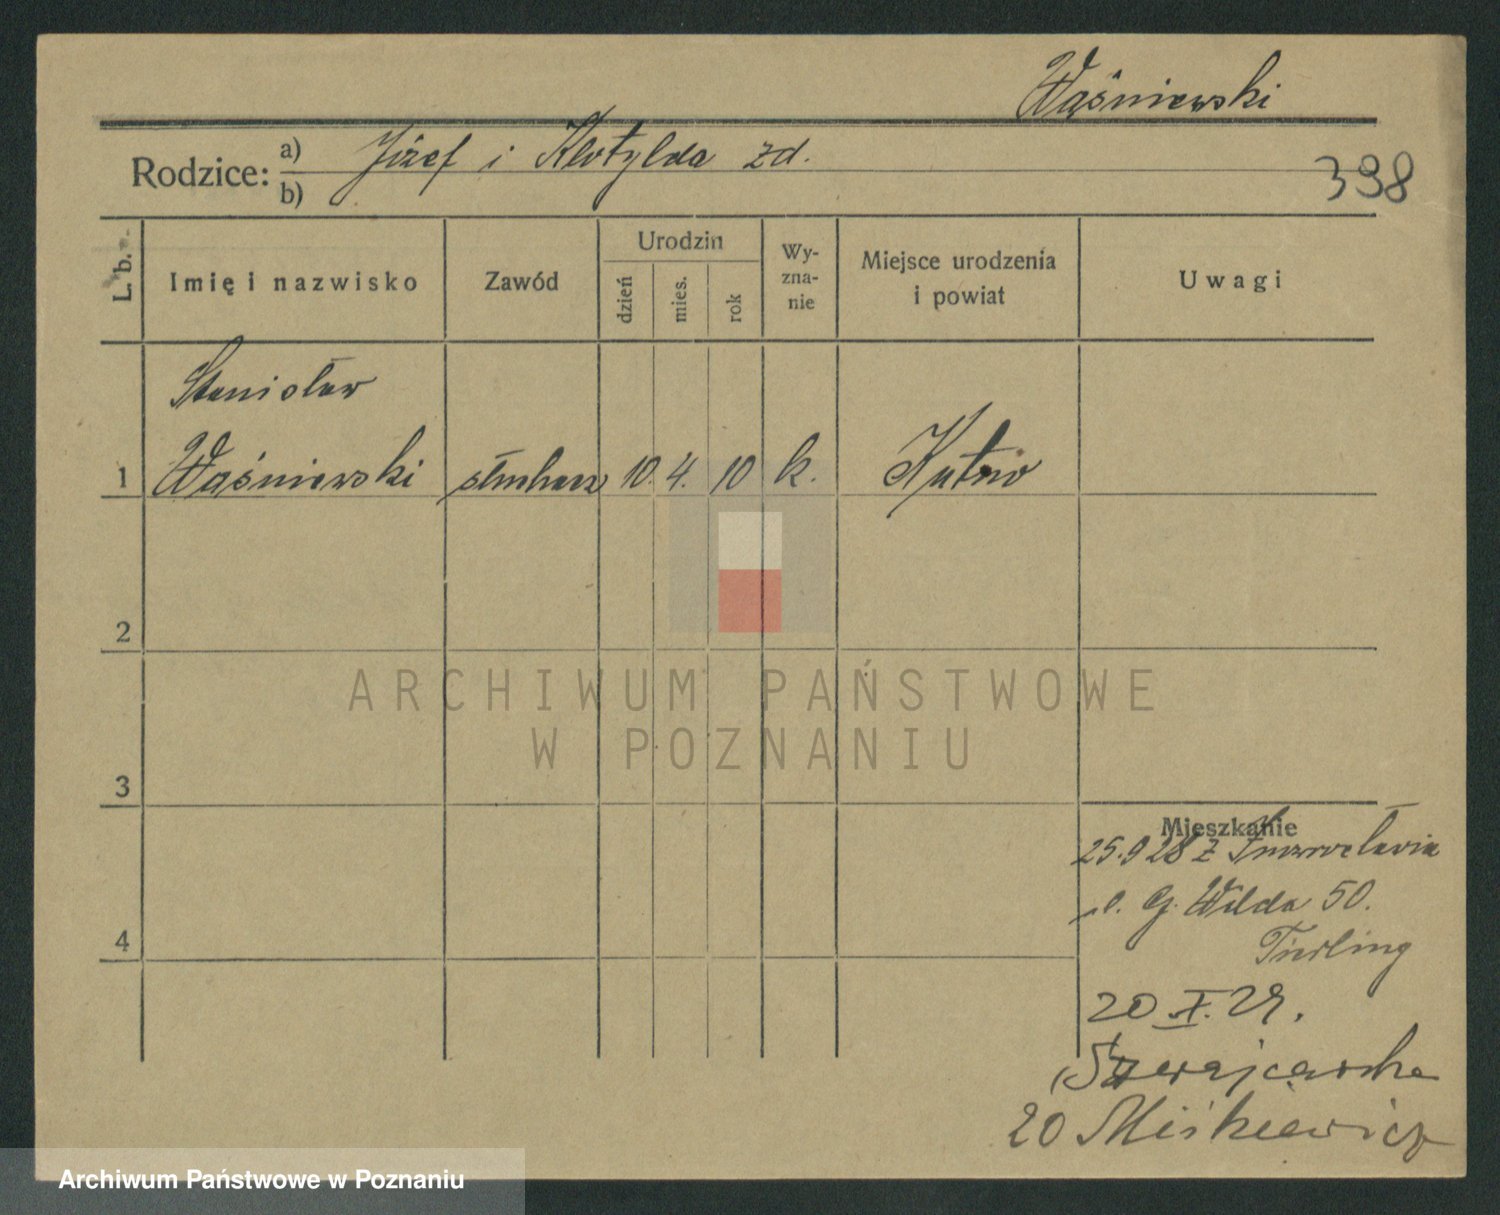 Waśniewski
Rodzice: a) b) Józef i Klotylda zd.
398
L. b.
Imię i nazwisko
Zawód
Urodzin
dzień
mies.
rok
Wy-
zna-
nie
Miejsce urodzenia
i powiat
Uwagi
Stanisław
1 Waśniewski ślusarz 10. 4. 10 k. Kutno
2
3
4
ARCHIWUM PAŃSTWOWE
W POZNANIU
Mieszkanie
25.9 28 z Inowrocławia
G. Wilda 50.
Tierling
20.X.29.
Szwajcarska
20 Miśkiewicz
Archiwum Państwowe w Poznaniu